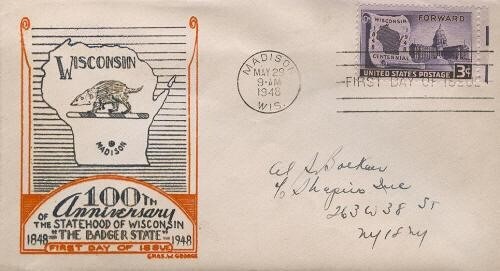 WISCONSIN
MADISON
100TH
Anniversary
OF THE STATEHOOD OF WISCONSIN
1848 "THE BADGER STATE" 1948
(FIRST DAY OF ISSUE)
CHAS. W. GEORGE
MADISON
MAY 29
9-AM
1948
WIS.
WISCONSIN FORWARD
1848 1948
CENTENNIAL
UNITED STATES POSTAGE 3¢
FIRST DAY OF ISSUE
Al S.
c/o Shapiro Inc
263 W 38 St
NY 18 NY